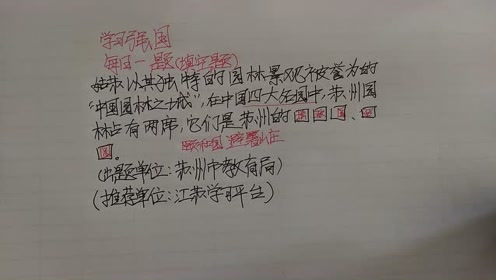 学习强国
每日一题(填空题)
姑苏以其独特的园林景观被誉为的
“中国园林之城”,在中国四大名园中,苏州园
林占有两席,它们是苏州的园园园、园
园。
(出题单位:苏州市教育局)
(推荐单位:江苏学习平台)